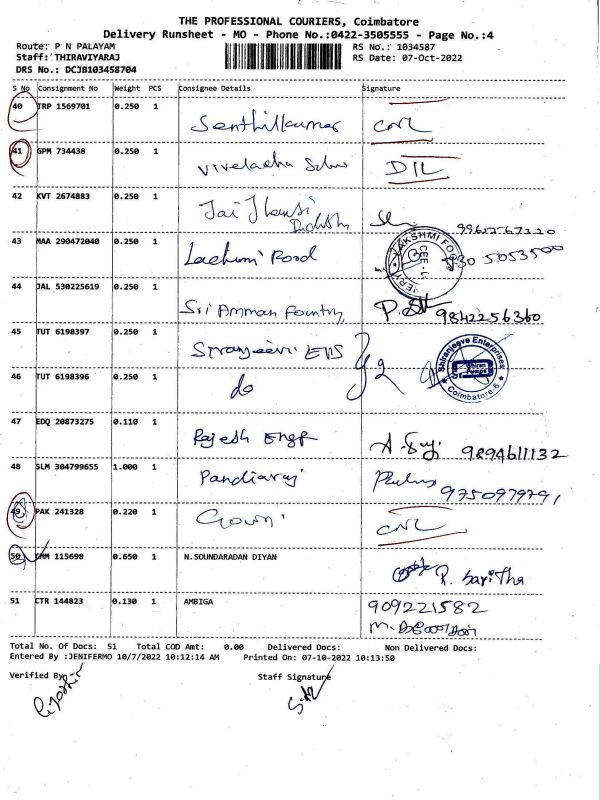 THE PROFESSIONAL COURIERS, Coimbatore
Delivery Runsheet - MO - Phone No.:0422-3505555 - Page No.:4
Route: P N PALAYAM RS No.: 1034587
Staff: THIRAVIYARAJ RS Date: 07-Oct-2022
DRS No.: DCJB103458704
S No Consignment No Weight PCS Consignee Details Signature
40 TRP 1569701 0.250 1 Senthilkumar CNL
41 GPM 734438 0.250 1 DIL
42 KVT 2674883 0.250 1 Jai
43 MAA 290472040 0.250 1 Lachumi Road
44 JAL 530225619 0.250 1 Sri Amman Fountry 9842256360
45 TUT 6198397 0.250 1
Shiranjeeve Enterprises
Coimbatore-6
46 TUT 6198396 0.250 1 do
47 EDQ 20873275 0.110 1 Rajesh Engr 9894611132
48 SLM 304799655 1.000 1 Pandiaraj
49 PAK 241328 0.220 1 Gowri CNL
50 115698 0.650 1 N.SOUNDARADAN DIYAN R. Haritha
51 CTR 144823 0.130 1 AMBIGA 909221582
Total No. Of Docs: 51 Total COD Amt: 0.00 Delivered Docs: Non Delivered Docs:
Entered By :JENIFERMO 10/7/2022 10:12:14 AM Printed On: 07-10-2022 10:13:50
Verified By Staff Signature